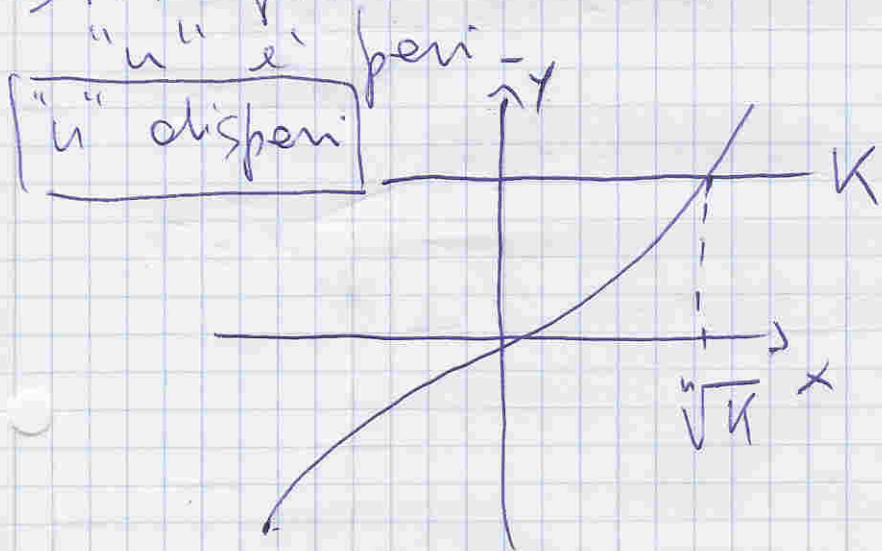 "n" è pari
"n" dispari
Y
K
ⁿ√K x